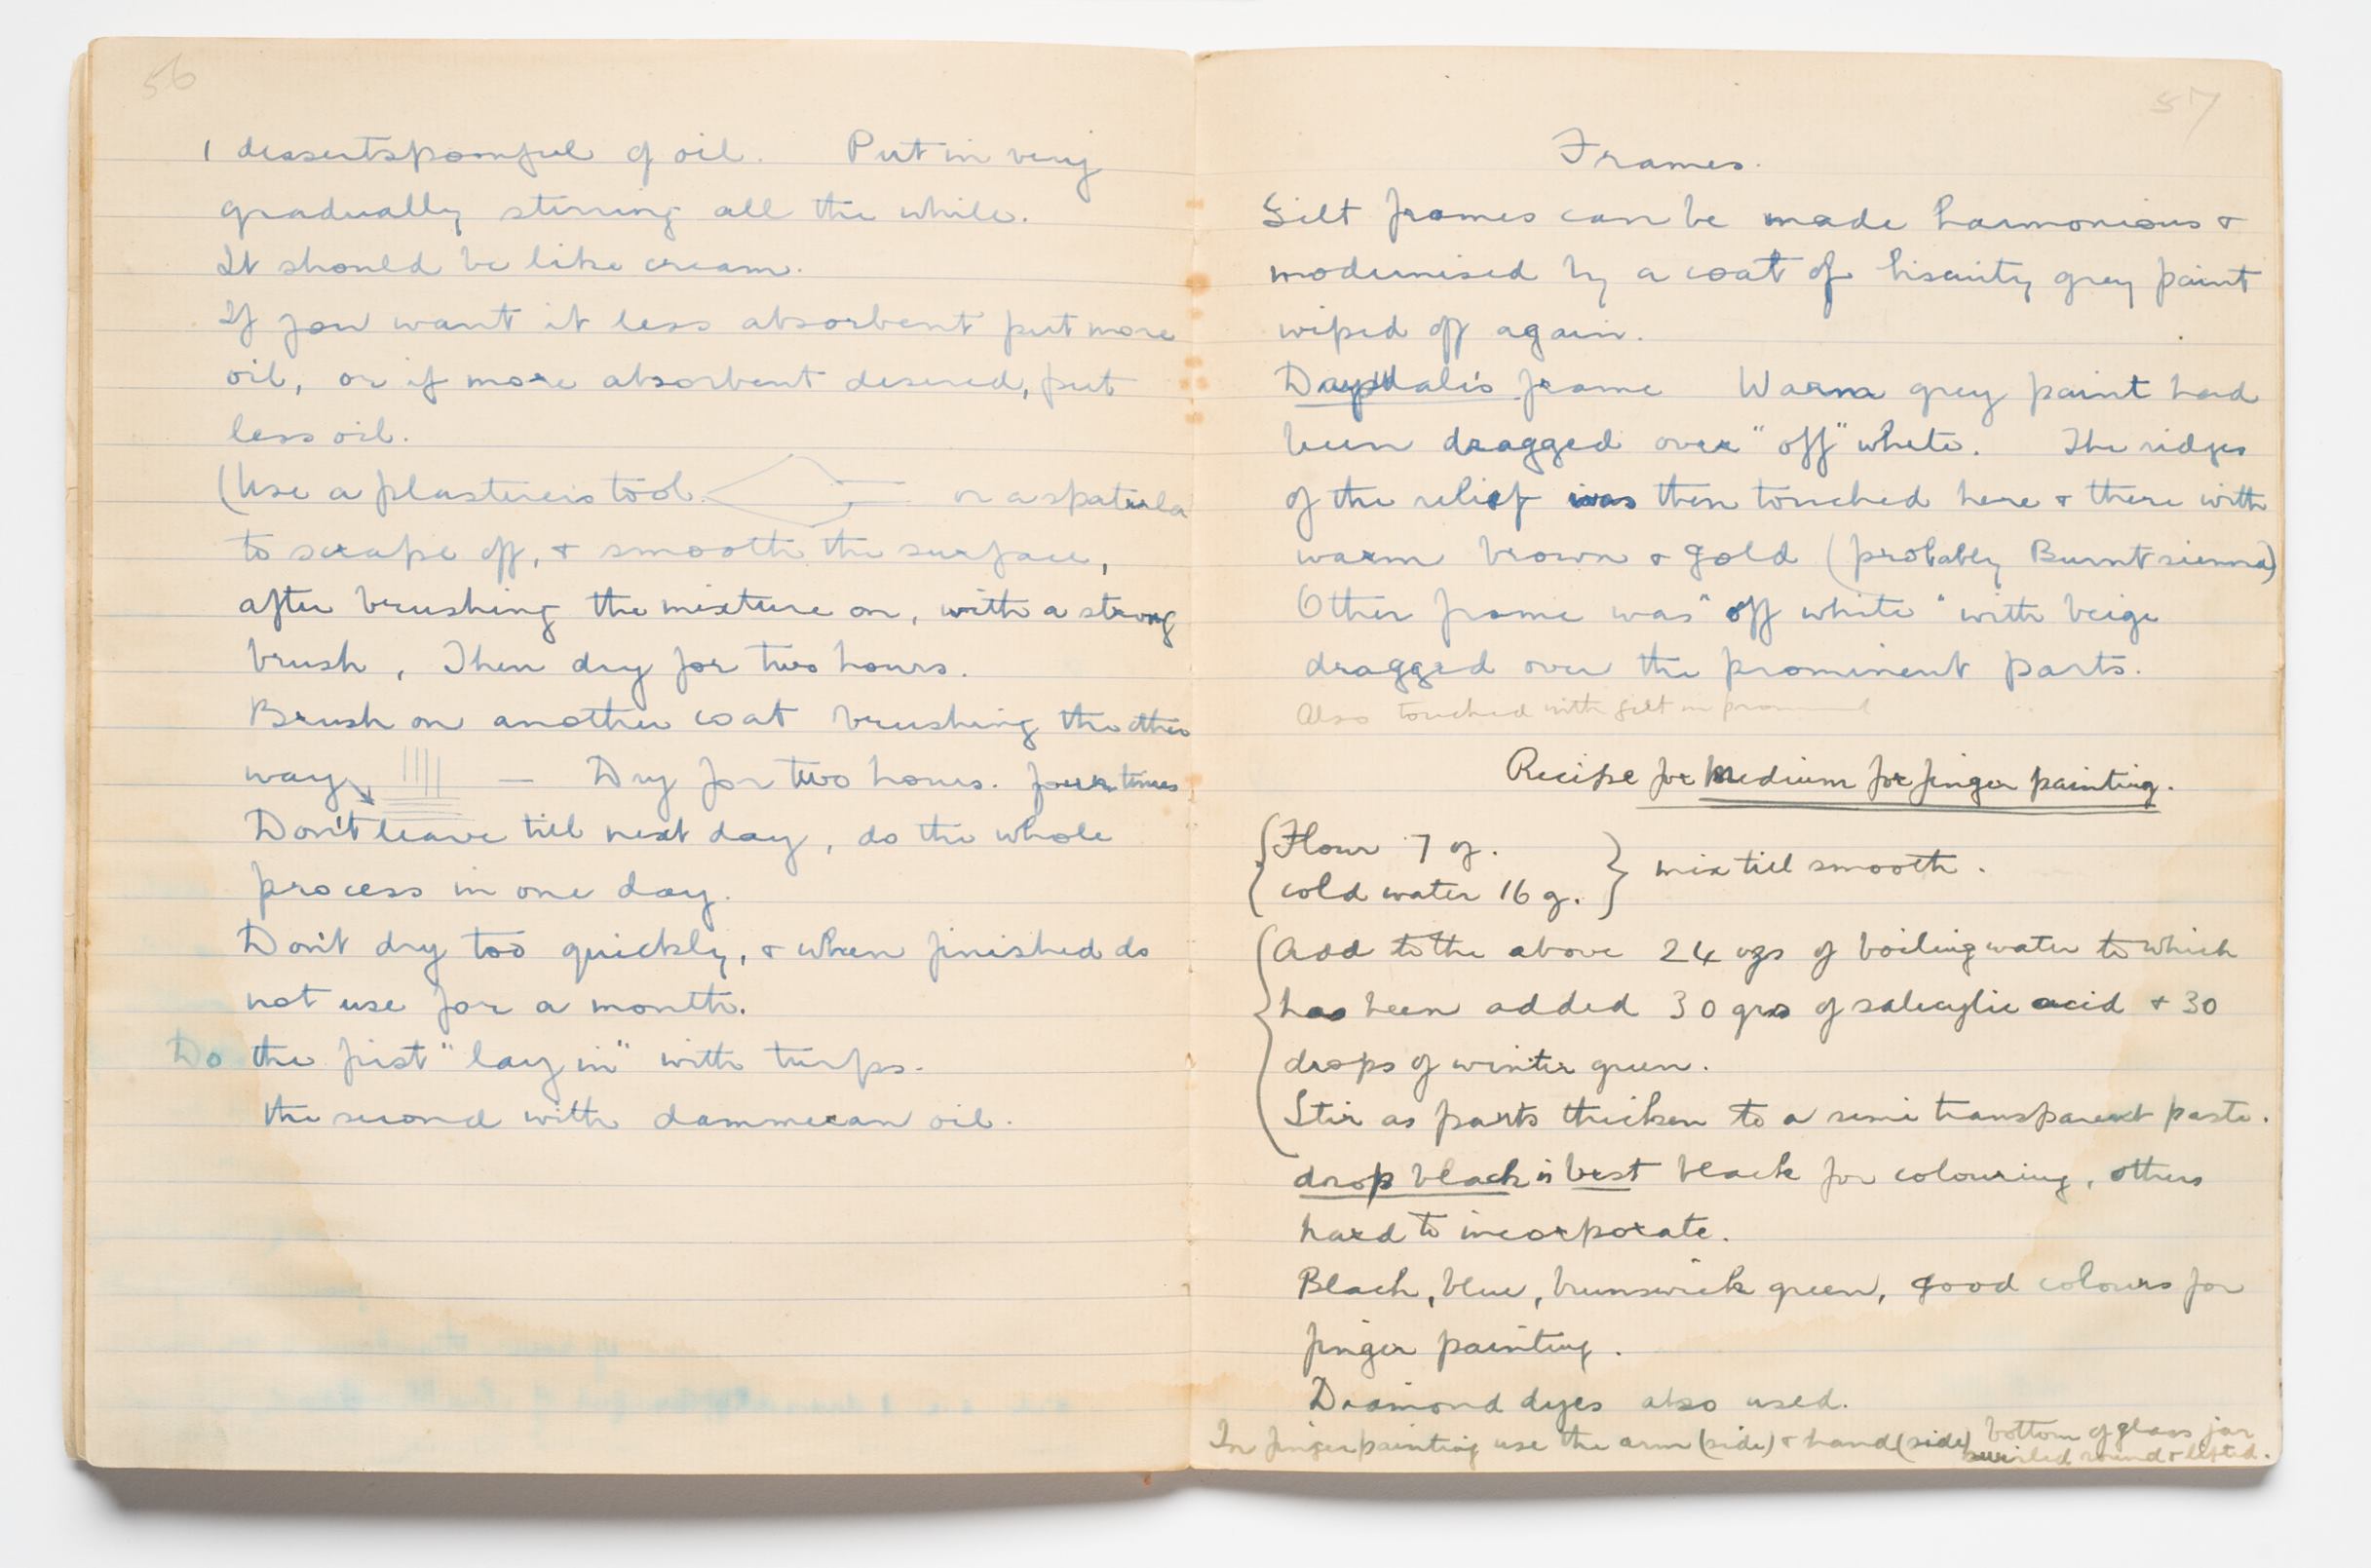 56
1 dessertspoonful of oil. Put in very
gradually stirring all the while.
It should be like cream.
If you want it less absorbent put more
oil, or if more absorbent desired, put
less oil.
(Use a plasterers tool or a spatula
to scrape off, & smooth the surface,
after brushing the mixture on, with a strong
brush, Then dry for two hours.
Brush on another coat brushing the other
way — Dry for two hours. four times
Don't leave till next day, do the whole
process in one day.
Don't dry too quickly, & when finished do
not use for a month.
Do the first "lay in" with turps.
the second with dammar an oil.
57
Frames.
Gilt frames can be made harmonious &
modernised by a coat of biscuity grey paint
wiped off again.
frame Warm grey paint had
been dragged over "off" white. The ridges
of the relief was then touched here & there with
warm brown & gold (probably Burnt sienna)
Other frame was "off white" with beige
dragged over the prominent parts.
Also touched with gilt in
Recipe for Medium for finger painting.
Flour 7 oz.
cold water 16 oz. } mix till smooth.
Add to the above 24 ozs of boiling water to which
has been added 30 grs of salicylic acid & 30
drops of winter green.
Stir as parts thicken to a semi transparent paste.
drop black is best black for colouring, others
hard to incorporate.
Black, blue, brunswick green, good colours for
finger painting.
Diamond dyes also used.
In finger painting use the arm (side) & hand (side) bottom of glass jar
swirled round & lifted.